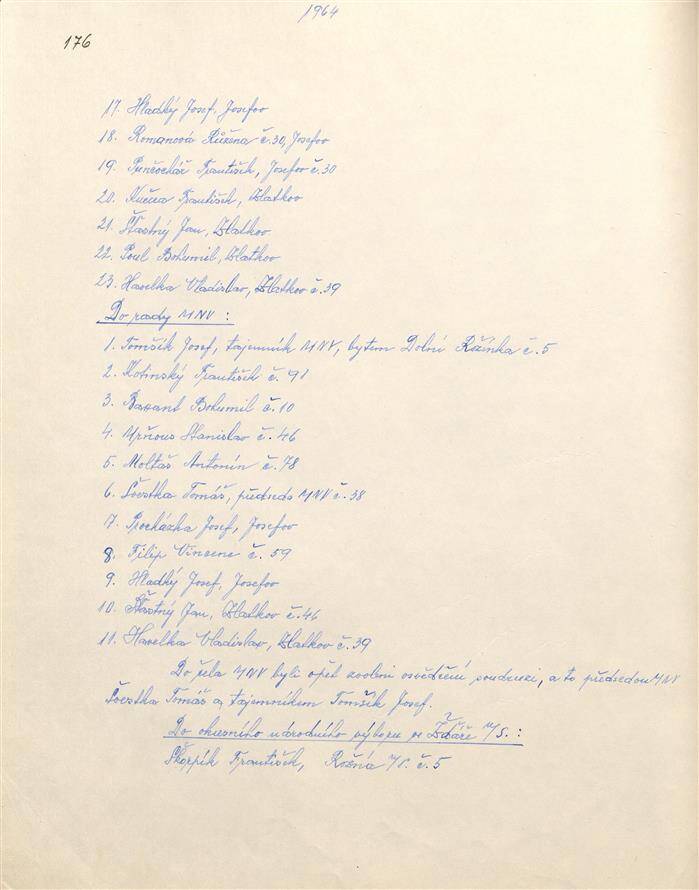 1964
176
17. Hladký Josef, Josefov
18. Romanová Růžena č.30, Josefov
19. Punčochář František, Josefov č.30
20. Kučera František, Zlatkov
21. Šťastný Jan, Zlatkov
22. Poul Bohumil, Zlatkov
23. Havelka Vladislav, Zlatkov č.39
Do rady MNV :
1. Tomšík Josef, tajemník MNV, bytem Dolní Rožínka č.5
2. Kotinský František č.91
3. Bazant Bohumil č.10
4. Mrňous Stanislav č.46
5. Moltaš Antonín č.78
6. Švestka Tomáš, předseda MNV č.38
7. Procházka Josef, Josefov
8. Filip Vincenc č.59
9. Hladký Josef, Josefov
10. Šťastný Jan, Zlatkov č.46
11. Havelka Vladislav, Zlatkov č.39
Do čela MNV byli opět zvoleni osvědčení soudruzi, a to předsedou MNV
Švestka Tomáš a tajemníkem Tomšík Josef.
Do okresního národního výboru ve Žďáře n/S. :
Skřipík František, Rožná n/P. č.5